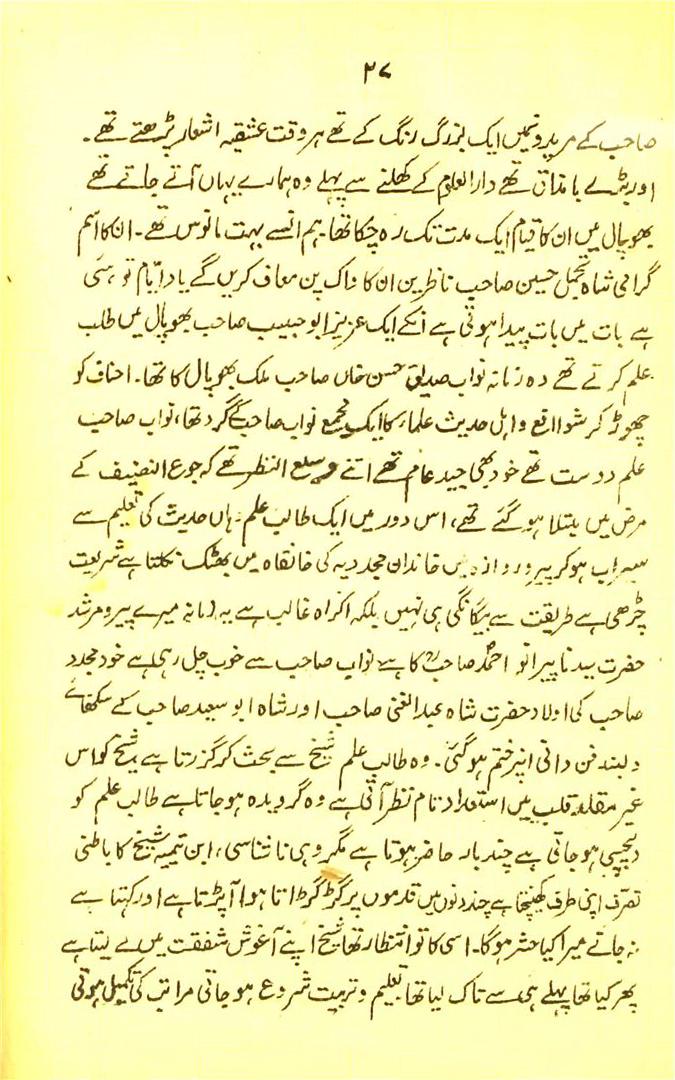 ۲۷
صاحب کے مریدونمیں ایک بزرگ رنگ کے تھے ہر وقت عشقیہ اشعار پڑھتے تھے۔
اور بڑے بامذاق تھے دارالعلوم کے کھلنے سے پہلے وہ ہمارے یہاں آتے جاتے تھے
بھوپال میں ان کا قیام ایک مدت تک رہ چکا تھا۔ ہم انسے بہت مانوس تھے۔ ان کا اسم
گرامی شاہ تجمل حسین صاحب ناظرین ان کا پن معاف کریں گے یاد ایام تو ہے ہی
ہے بات میں بات پیدا ہوتی ہے انکے ایک عزیز ابو حبیب صاحب بھوپال میں طلب
علم کرتے تھے وہ زمانہ نواب صدیق حسن خاں صاحب ملک بھوپال کا تھا۔ احناف کو
چھوڑ کر شوافع و اہل حدیث علماء کا ایک مجمع نواب صاحب کے گرد تھا، نواب صاحب
علم دوست تھے خود بھی جید عالم تھے اتنے وسیع النظر تھے کہ جوع التصنیف کے
مرض میں مبتلا ہو گئے تھے، اس دور میں ایک طالب علم۔ ہاں حدیث کی تعلیم سے
سیراب ہو کر پیر دروازہ میں خاندان مجددیہ کی خانقاہ میں بھٹک نکلتا ہے شریعت
چڑھی ہے طریقت سے بیگانگی ہی نہیں بلکہ اکراہ غالب ہے یہ زمانہ میرے پیر و مرشد
حضرت سیدنا پیر ابو احمد صاحبؒ کا ہے نواب صاحب سے خوب چل رہی ہے خود مجدد
صاحب کی اولاد حضرت شاہ عبدالغنی صاحب اور شاہ ابو سعید صاحب کے سکھائے
دلبند فن دانی انپر ختم ہو گئی۔ وہ طالب علم شیخ سے بحث کر گزرتا ہے شیخ کو اس
غیر مقلد قلب میں استعداد تام نظر آتی ہے وہ گرویدہ ہو جاتا ہے طالب علم کو
دلچسپی ہو جاتی ہے چند بار حاضر ہوتا ہے مگر وہی ناشناسی، ابن تیمیہ شیخ کا باطنی
تصرف اپنی طرف کھینچتا ہے چند دنوں میں قدموں پر گڑگڑاتا ہوا آ پڑتا ہے اور کہتا ہے
نہ جانے میرا کیا حشر ہو گا۔ اسی کا تو انتظار تھا شیخ اپنے آغوش شفقت میں لے لیتا ہے
پھر کیا تھا پہلے ہی سے تاک لیا تھا تعلیم و تربیت شروع ہو جاتی مراتب کی تکمیل ہوتی